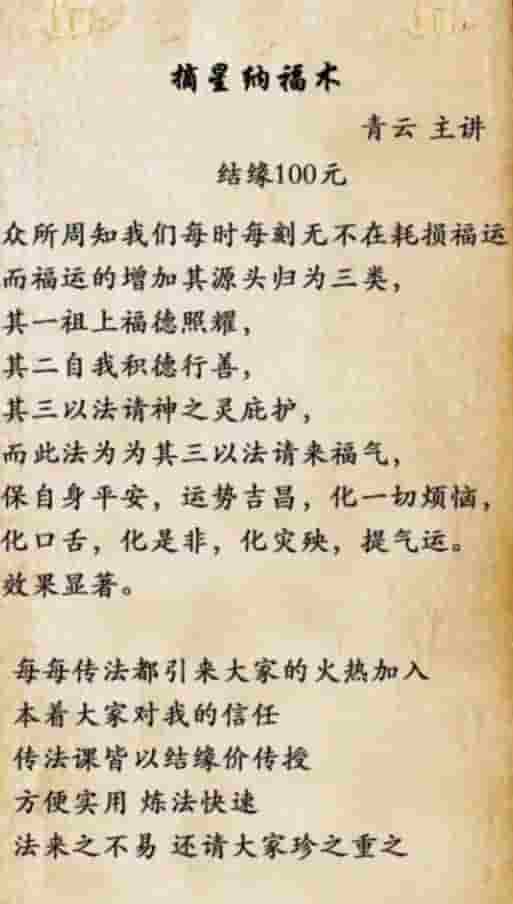 摘星纳福术
青云 主讲
结缘100元
众所周知我们每时每刻无不在耗损福运
而福运的增加其源头归为三类，
其一祖上福德照耀，
其二自我积德行善，
其三以法请神之灵庇护，
而此法为为其三以法请来福气，
保自身平安，运势吉昌，化一切烦恼，
化口舌，化是非，化灾殃，提气运。
效果显著。
每每传法都引来大家的火热加入
本着大家对我的信任
传法课皆以结缘价传授
方便实用 炼法快速
法来之不易 还请大家珍之重之